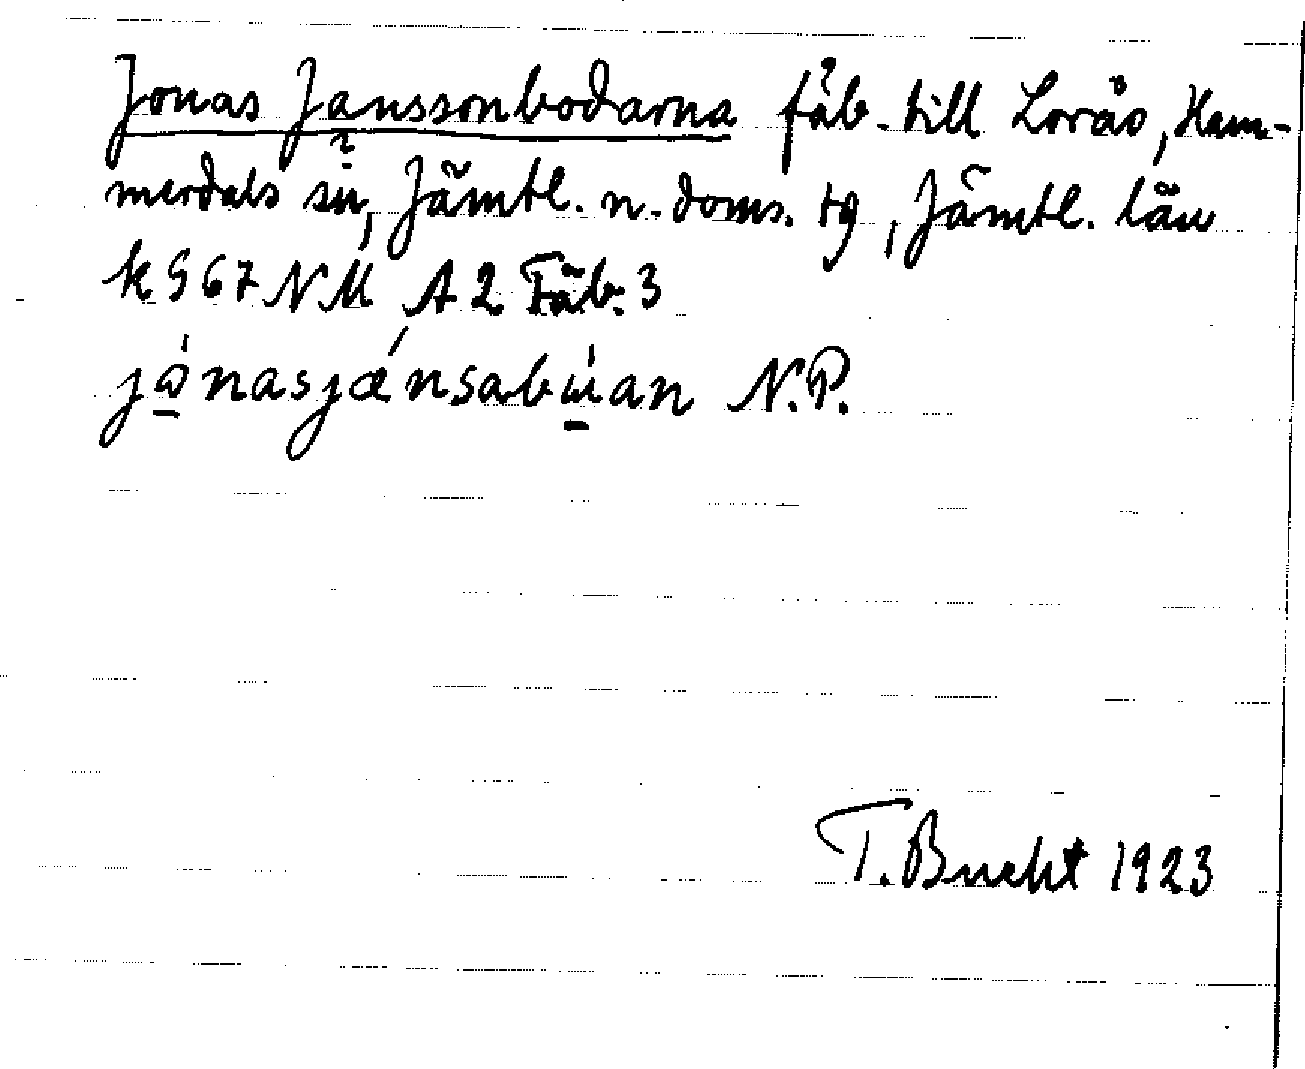 Jonas Janssonbodarna fäb. till Loråo, Ham-
merdals sn, Jämtl. n. doms. tg, Jämtl. län
k 967 NM A 2 Fäb. 3
jǫ̀nasjǽnsabu̱̇an N.P.
T. Bucht 1923